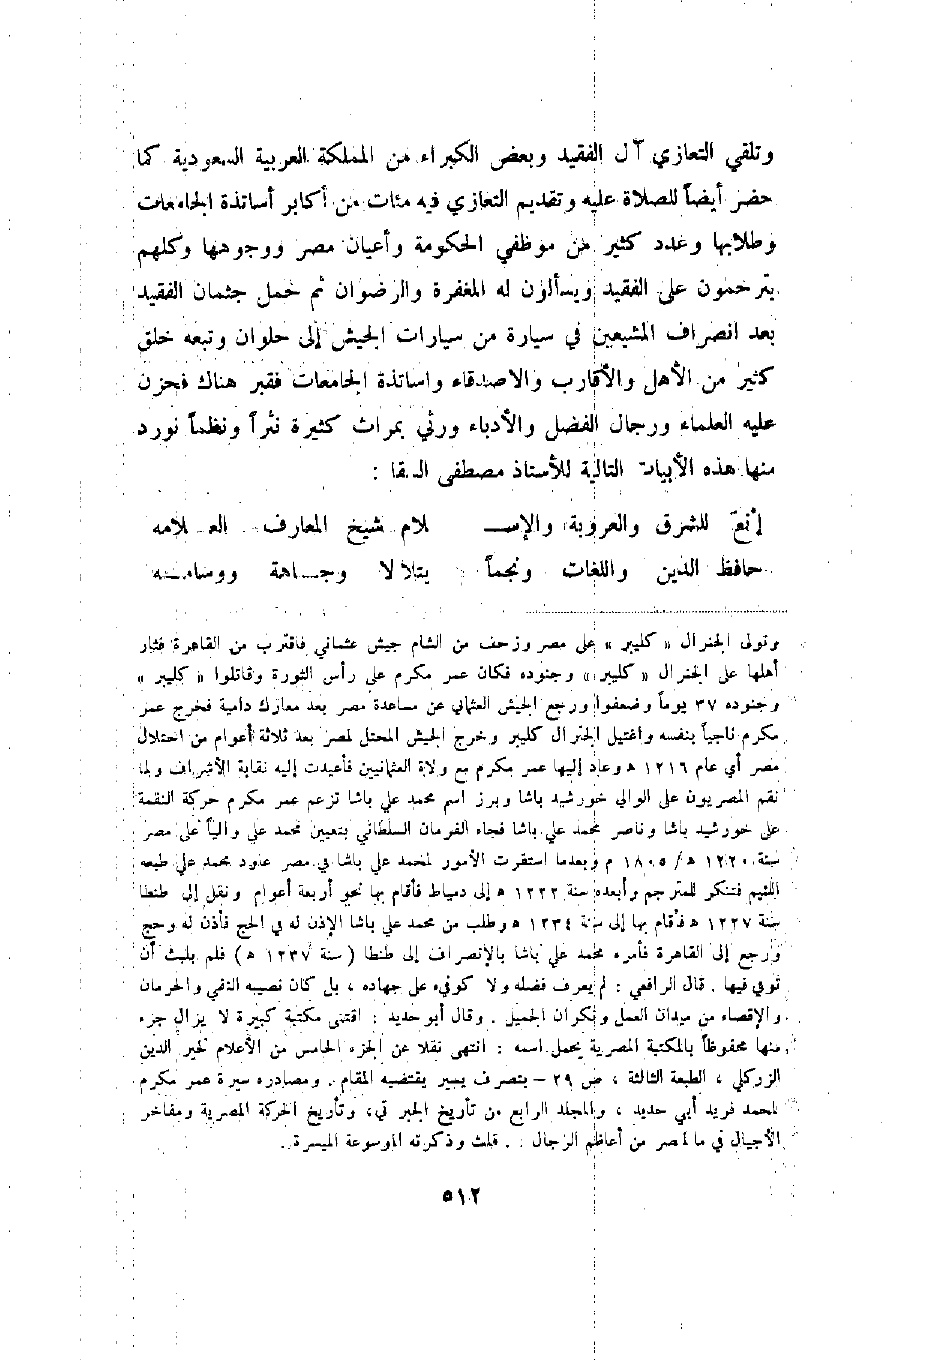 وتلقي التعازي آل الفقيد وبعض الكبراء من المملكة العربية السعودية كما
حضر أيضاً للصلاة عليه وتقديم التعازي فيه مئات من أكابر أساتذة الجامعات
وطلابها وعدد كثير من موظفي الحكومة وأعيان مصر ووجوهها وكلهم
يترحمون على الفقيد ويسألون له المغفرة والرضوان ثم حمل جثمان الفقيد
بعد انصراف المشيعين في سيارة من سيارات الجيش إلى حلوان وتبعه خلق
كثير من الأهل والأقارب والاصدقاء واساتذة الجامعات فقبر هناك فحزن
عليه العلماء ورجال الفضل والأدباء ورثي بمراث كثيرة نثراً ونظماً نورد
منها هذه الأبيات التالية للأستاذ مصطفى السقا :
إنع للشرق والعروبة والإســـ لام شيخ المعارف العـلامه
حافظ الدين واللغات ونجماً يتلالا وجـــاهة ووسامـــه
وتولى الجنرال « كليبر » على مصر وزحف من الشام جيش عثماني فاقترب من القاهرة فثار
أهلها على الجنرال « كليبر » وجنوده فكان عمر مكرم على رأس الثورة وقاتلوا « كليبر »
وجنوده ٣٧ يوماً وضعفوا ورجع الجيش العثماني عن مساعدة مصر بعد معارك دامية فخرج عمر
مكرم ناجياً بنفسه واغتيل الجنرال كليبر وخرج الجيش المحتل لمصر بعد ثلاثة أعوام من احتلال
مصر أي عام ١٢١٦ ه وعاد إليها عمر مكرم مع ولاة العثمانيين فأعيدت إليه نقابة الأشراف ولما
نقم المصريون على الوالي خورشيد باشا وبرز اسم محمد علي باشا تزعم عمر مكرم حركة النقمة
على خورشيد باشا وناصر محمد علي باشا فجاء الفرمان السلطاني بتعيين محمد علي والياً على مصر
سنة ١٢٢٠ ه / ١٨٠٥ م وبعدما استقرت الأمور لمحمد علي باشا في مصر عاود محمد علي طبعه
اللئيم فتنكر للمترجم وأبعده سنة ١٢٢٢ ه إلى دمياط فأقام بها نحو أربعة أعوام ونقل إلى طنطا
سنة ١٢٢٧ ه فأقام بها إلى سنة ١٢٣٤ ه وطلب من محمد علي باشا الإذن له في الحج فأذن له وحج
ورجع إلى القاهرة فأمره محمد علي باشا بالإنصراف إلى طنطا ( سنة ١٢٣٧ ه ) فلم يلبث أن
توفي فيها . قال الرافعي : لم يعرف فضله ولا كوفيء على جهاده ، بل كان نصيبه النفي والحرمان
والإقصاء من ميدان العمل ونكران الجميل . وقال أبو حديد : اقتنى مكتبة كبيرة لا يزال جزء
منها محفوظاً بالمكتبة المصرية يحمل اسمه : انتهى نقلا عن الجزء الخامس من الأعلام لخير الدين
الزركلي ، الطبعة الثالثة ، ص ٢٩ – بتصرف يسير يقتضيه المقام . ومصادره سيرة عمر مكرم
لمحمد فريد أبي حديد ، والمجلد الرابع من تأريخ الجبرتي ، وتأريخ الحركة المصرية ومفاخر
الأجيال في ما لمصر من أعاظم الرجال . . قلت وذكرته الموسوعة الميسرة .
٥١٢